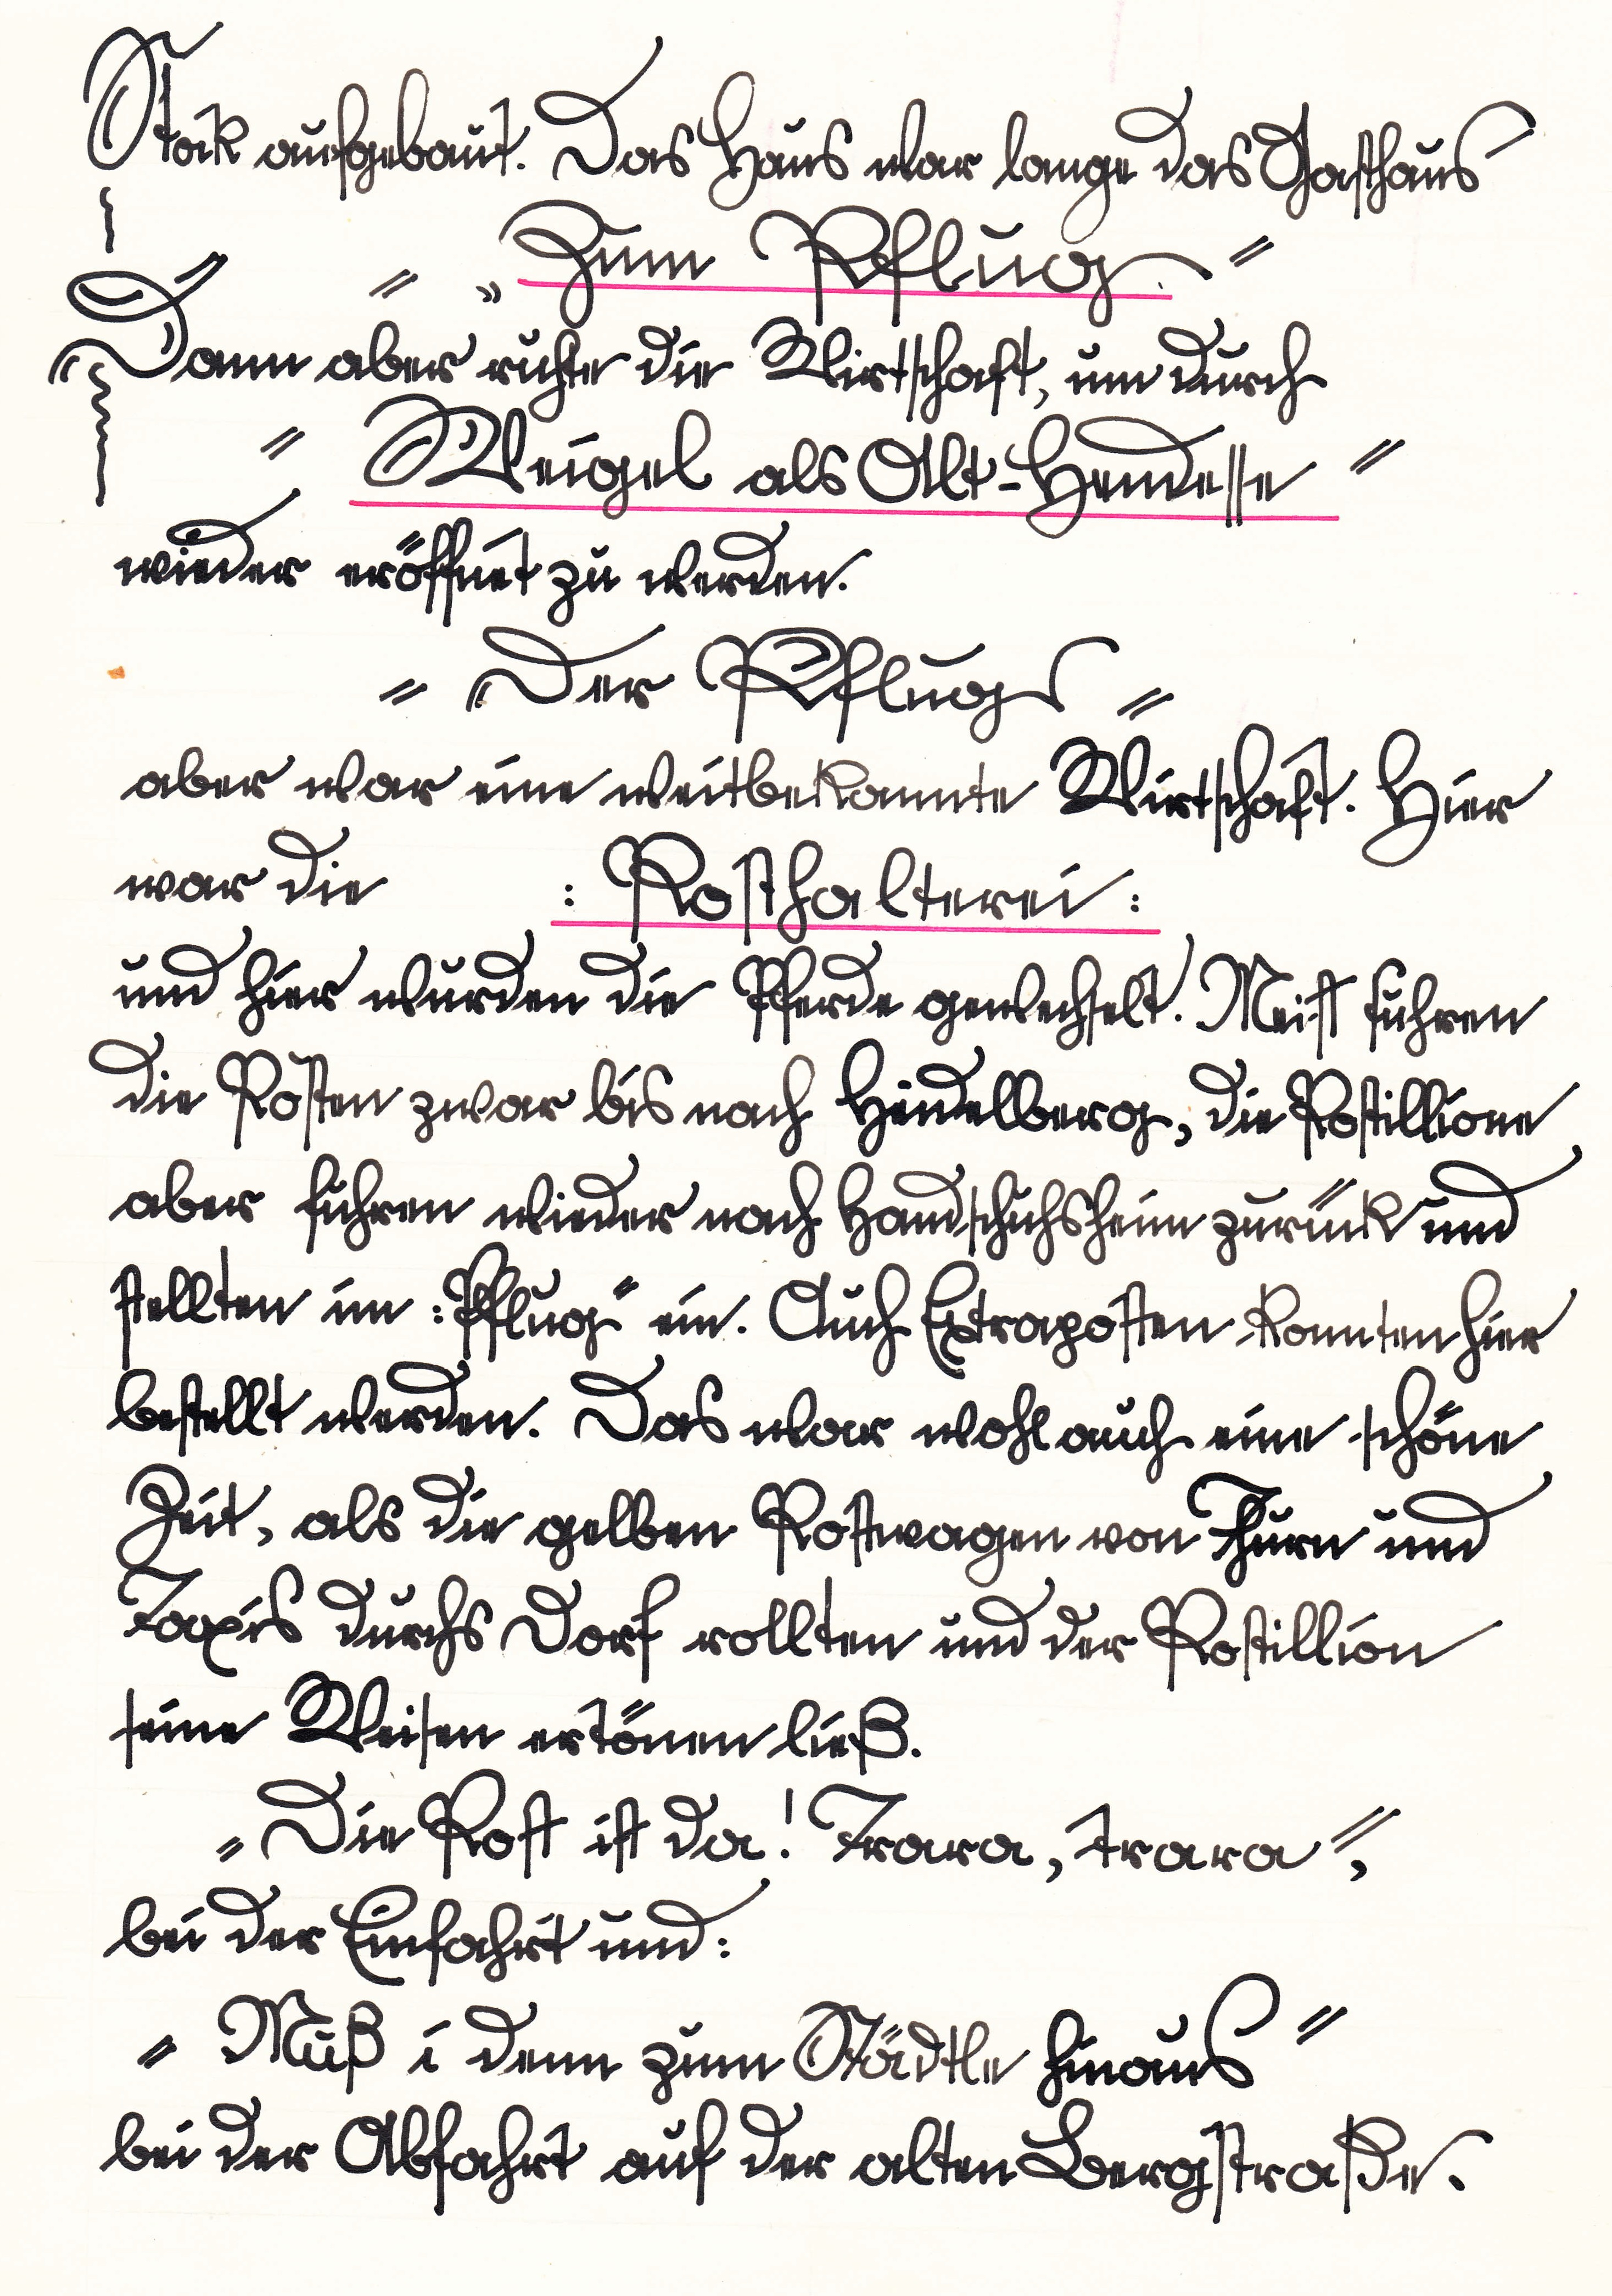 Stock aufgebaut. Das Haus war lange das Gasthaus
" „Zum Pflug."
Dann aber ruhte die Wirtschaft, um durch
" Weigel als Alt-Hendesse "
wieder eröffnet zu werden.
" Der Pflug "
aber war eine weitbekannte Wirtschaft. Hier
war die : Posthalterei :
und hier wurden die Pferde gewechselt. Meist fuhren
die Posten zwar bis nach Heidelberg, die Postillione
aber fuhren wieder nach Handschuhsheim zurück und
stellten im :Pflug" ein. Auch Extraposten konnten hier
bestellt werden. Das war wohl auch eine schöne
Zeit, als die gelben Postwagen von Thurn und
Taxis durchs Dorf rollten und der Postillion
seine Weisen ertönen ließ.
„Die Post ist da! Trara, trara",
bei der Einfahrt und:
„Muß i denn zum Städtle hinaus"
bei der Abfahrt auf der alten Bergstraße.